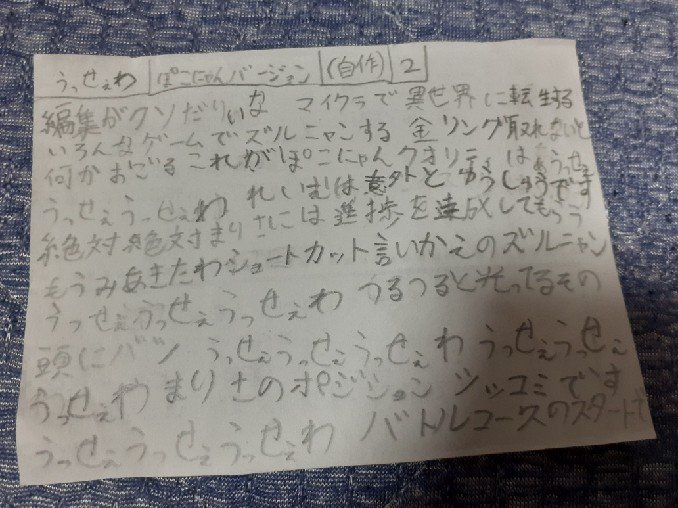 うっせぇわ ぽこにゃんバージョン (自作) 2
編集がクソだりぃな マイクラで異世界に転生する
いろんなゲームでズルニャンする 金リング取れないと
何かおごる これがぽこにゃんクオリティ はぁうっせぇ
うっせぇうっせぇわ れいむは意外とゆうしゅうです
絶対絶対まりさには進捗を達成してもらう
もうみあきたわショートカット言いかえのズルニャン
うっせぇうっせぇうっせぇわ つるつると光ってるその
頭にバツ うっせぇうっせぇうっせぇわ うっせぇうっせぇ
うっせぇわ まりさのポジション ツッコミです
うっせぇうっせぇうっせぇわ バトルコースのスタートで